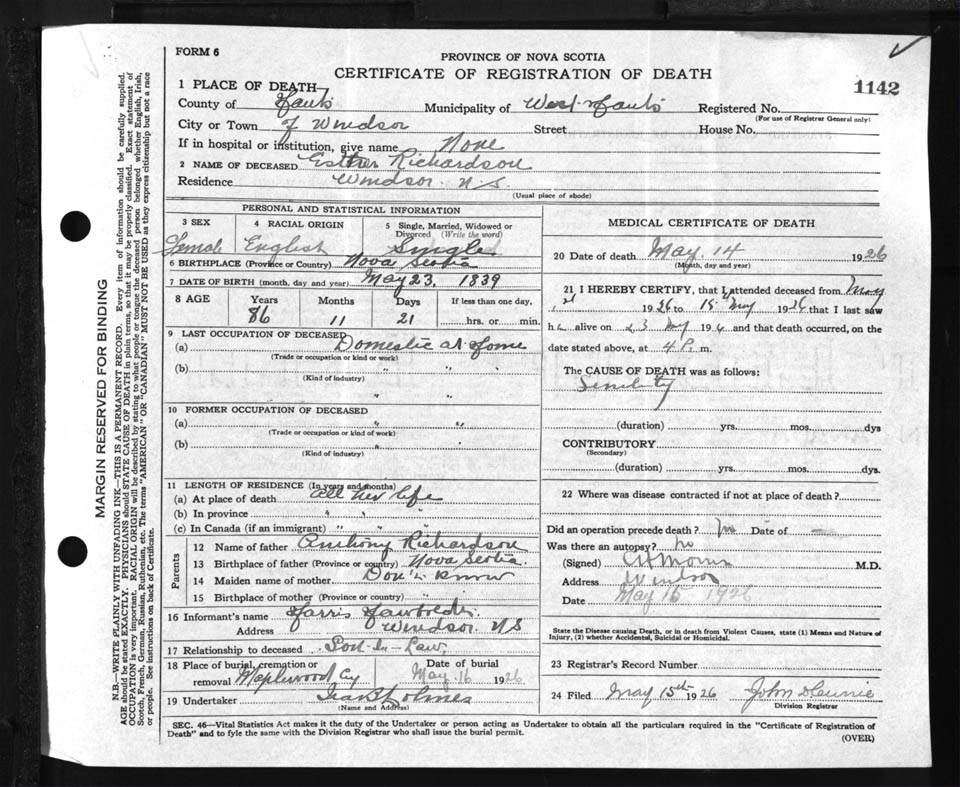 FORM 6
PROVINCE OF NOVA SCOTIA
CERTIFICATE OF REGISTRATION OF DEATH
1142
1 PLACE OF DEATH
County of Hants Municipality of West Hants Registered No.
(For use of Registrar General only)
City or Town of Windsor Street House No.
If in hospital or institution, give name None
2 NAME OF DECEASED Esther Richardson
Residence Windsor N.S.
(Usual place of abode)
PERSONAL AND STATISTICAL INFORMATION
3 SEX 4 RACIAL ORIGIN 5 Single, Married, Widowed or Divorced (Write the word)
Female English Single
6 BIRTHPLACE (Province or Country) Nova Scotia
7 DATE OF BIRTH (month, day and year) May 23, 1839
8 AGE Years Months Days If less than one day,
86 11 21 hrs. or min.
9 LAST OCCUPATION OF DECEASED
(a) Domestic at Home
(Trade or occupation or kind or work)
(b) " "
(Kind of industry)
" "
10 FORMER OCCUPATION OF DECEASED
(a) " "
(Trade or occupation or kind of work)
(b) " "
(Kind of industry)
11 LENGTH OF RESIDENCE (In years and months)
(a) At place of death all her life
(b) In province " " "
(c) In Canada (if an immigrant) " " "
Parents
12 Name of father Anthony Richardson
13 Birthplace of father (Province or country) Nova Scotia
14 Maiden name of mother Don't Know
15 Birthplace of mother (Province or country) " "
16 Informant's name Harris
Address Windsor NS
17 Relationship to deceased Son-In-Law
18 Place of burial, cremation or removal Maplewood Cy Date of burial May 16 1926
19 Undertaker Holmes
(Name and Address)
MEDICAL CERTIFICATE OF DEATH
20 Date of death May. 14 1926
(Month, day and year)
21 I HEREBY CERTIFY, that I attended deceased from May
1926 to 15 May 1926 that I last saw
h alive on May and that death occurred, on the
date stated above, at 4 P. m.
The CAUSE OF DEATH was as follows:
Senility
(duration) yrs. mos. dys
CONTRIBUTORY
(Secondary)
(duration) yrs. mos. dys.
22 Where was disease contracted if not at place of death?
Did an operation precede death? no Date of —
Was there an autopsy? no
(Signed) M.D.
Address Windsor
Date May 15 1926
State the Disease causing Death, or in death from Violent Causes, state (1) Means and Nature of
Injury, (2) whether Accidental, Suicidal or Homicidal.
23 Registrar's Record Number
24 Filed May 15th 1926 John
Division Registrar
SEC. 46—Vital Statistics Act makes it the duty of the Undertaker or person acting as Undertaker to obtain all the particulars required in the "Certificate of Registration of
Death" and to fyle the same with the Division Registrar who shall issue the burial permit.
(OVER)
MARGIN RESERVED FOR BINDING
N.B.—WRITE PLAINLY WITH UNFADING INK.—THIS IS A PERMANENT RECORD. Every item of information should be carefully supplied.
AGE should be stated EXACTLY. PHYSICIANS should STATE CAUSE OF DEATH in plain terms, so that it may be properly classified. Exact statement of
OCCUPATION is very important. RACIAL ORIGIN will be described by stating to what people or tongue the deceased person belonged whether English, Irish,
Scotch, French, German, Russian, Ruthenian, etc. The terms "AMERICAN" OR "CANADIAN" MUST NOT BE USED as they express citizenship but not a race
or people. See instructions on back of Certificate.